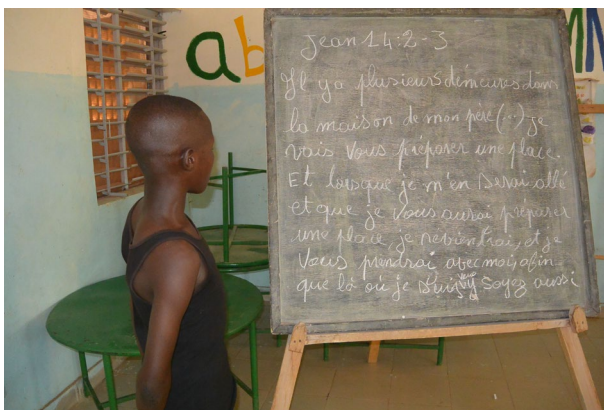 ab
Jean 14:2-3
Il y a plusieurs demeures dans
la maison de mon père (...) je
vais vous préparer une place.
Et lorsque je m'en serai allé
et que je vous aurai préparer
une place, je reviendrai, et je
vous prendrai avec moi, afin
que là où je suis, vous y soyez aussi